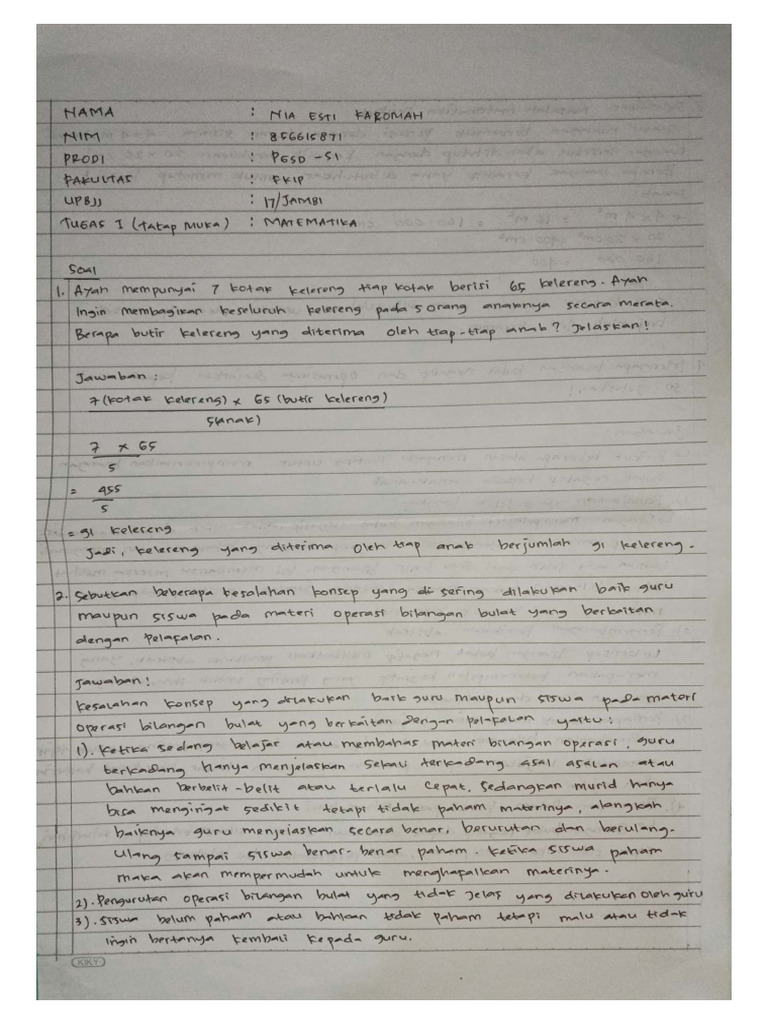 NAMA : NIA ESTI KAROMAH
NIM : 856615871
PRODI : PGSD - S1
FAKULTAS : FKIP
UPBJJ : 17/JAMBI
TUGAS I (TATAP MUKA) : MATEMATIKA
Soal
1. Ayah mempunyai 7 kotak kelereng tiap kotak berisi 65 kelereng. Ayah
Ingin membagikan keseluruh kelereng pada 5 orang anaknya secara merata.
Berapa butir kelereng yang diterima oleh tiap-tiap anak? Jelaskan!
Jawaban :
7 (kotak kelereng) x 65 (butir kelereng)
5(Anak)
7 x 65
5
= 455
5
= 91 kelereng
Jadi, kelereng yang diterima oleh tiap anak berjumlah 91 kelereng.
2. Sebutkan beberapa kesalahan konsep yang di sering dilakukan baik guru
maupun siswa pada materi operasi bilangan bulat yang berkaitan
dengan pelafalan.
Jawaban!
Kesalahan konsep yang dilakukan baik guru maupun siswa pada materi
operasi bilangan bulat yang berkaitan dengan pelafalan yaitu :
1). Ketika sedang belajar atau membahas materi bilangan operasi, guru
terkadang hanya menjelaskan sekali terkadang asal asalan atau
bahkan berbelit-belit atau terlalu cepat. Sedangkan murid hanya
bisa mengingat sedikit tetapi tidak paham materinya, alangkah
baiknya guru menjelaskan secara benar, berurutan dan berulang-
ulang sampai siswa benar-benar paham. Ketika siswa paham
maka akan mempermudah untuk menghafalkan materinya.
2). Pengurutan operasi bilangan bulat yang tidak jelas yang dilakukan oleh guru
3). Siswa belum paham atau bahkan tidak paham tetapi malu atau tidak
ingin bertanya kembali kepada guru.
KIKY